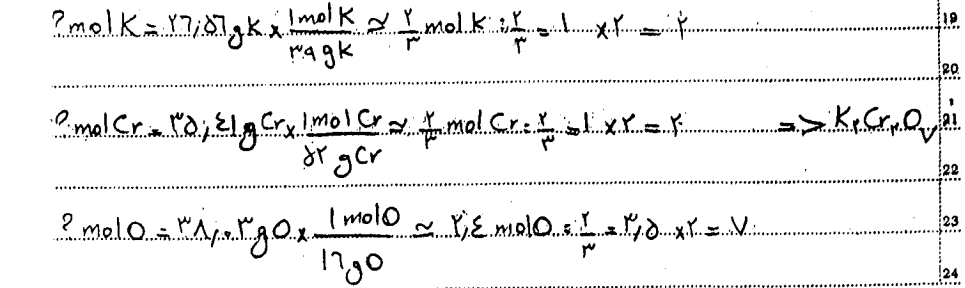 ? mol K = ۲۶,۵۶ g K × 1 mol K / ۳۹ g K ≃ ۲/۳ mol K ÷ ۲/۳ = ۱ × ۲ = ۲ 19
20
? mol Cr = ۳۵,٤۱ g Cr × 1 mol Cr / ۵۲ g Cr ≃ ۲/۳ mol Cr ÷ ۲/۳ = ۱ × ۲ = ۲ => K۲Cr۲O۷ 21
22
? mol O = ۳۸,۰۳ g O × 1 mol O / ۱۶ g O ≃ ۲,٤ mol O ÷ ۲/۳ = ۳,۵ × ۲ = ۷ 23
24